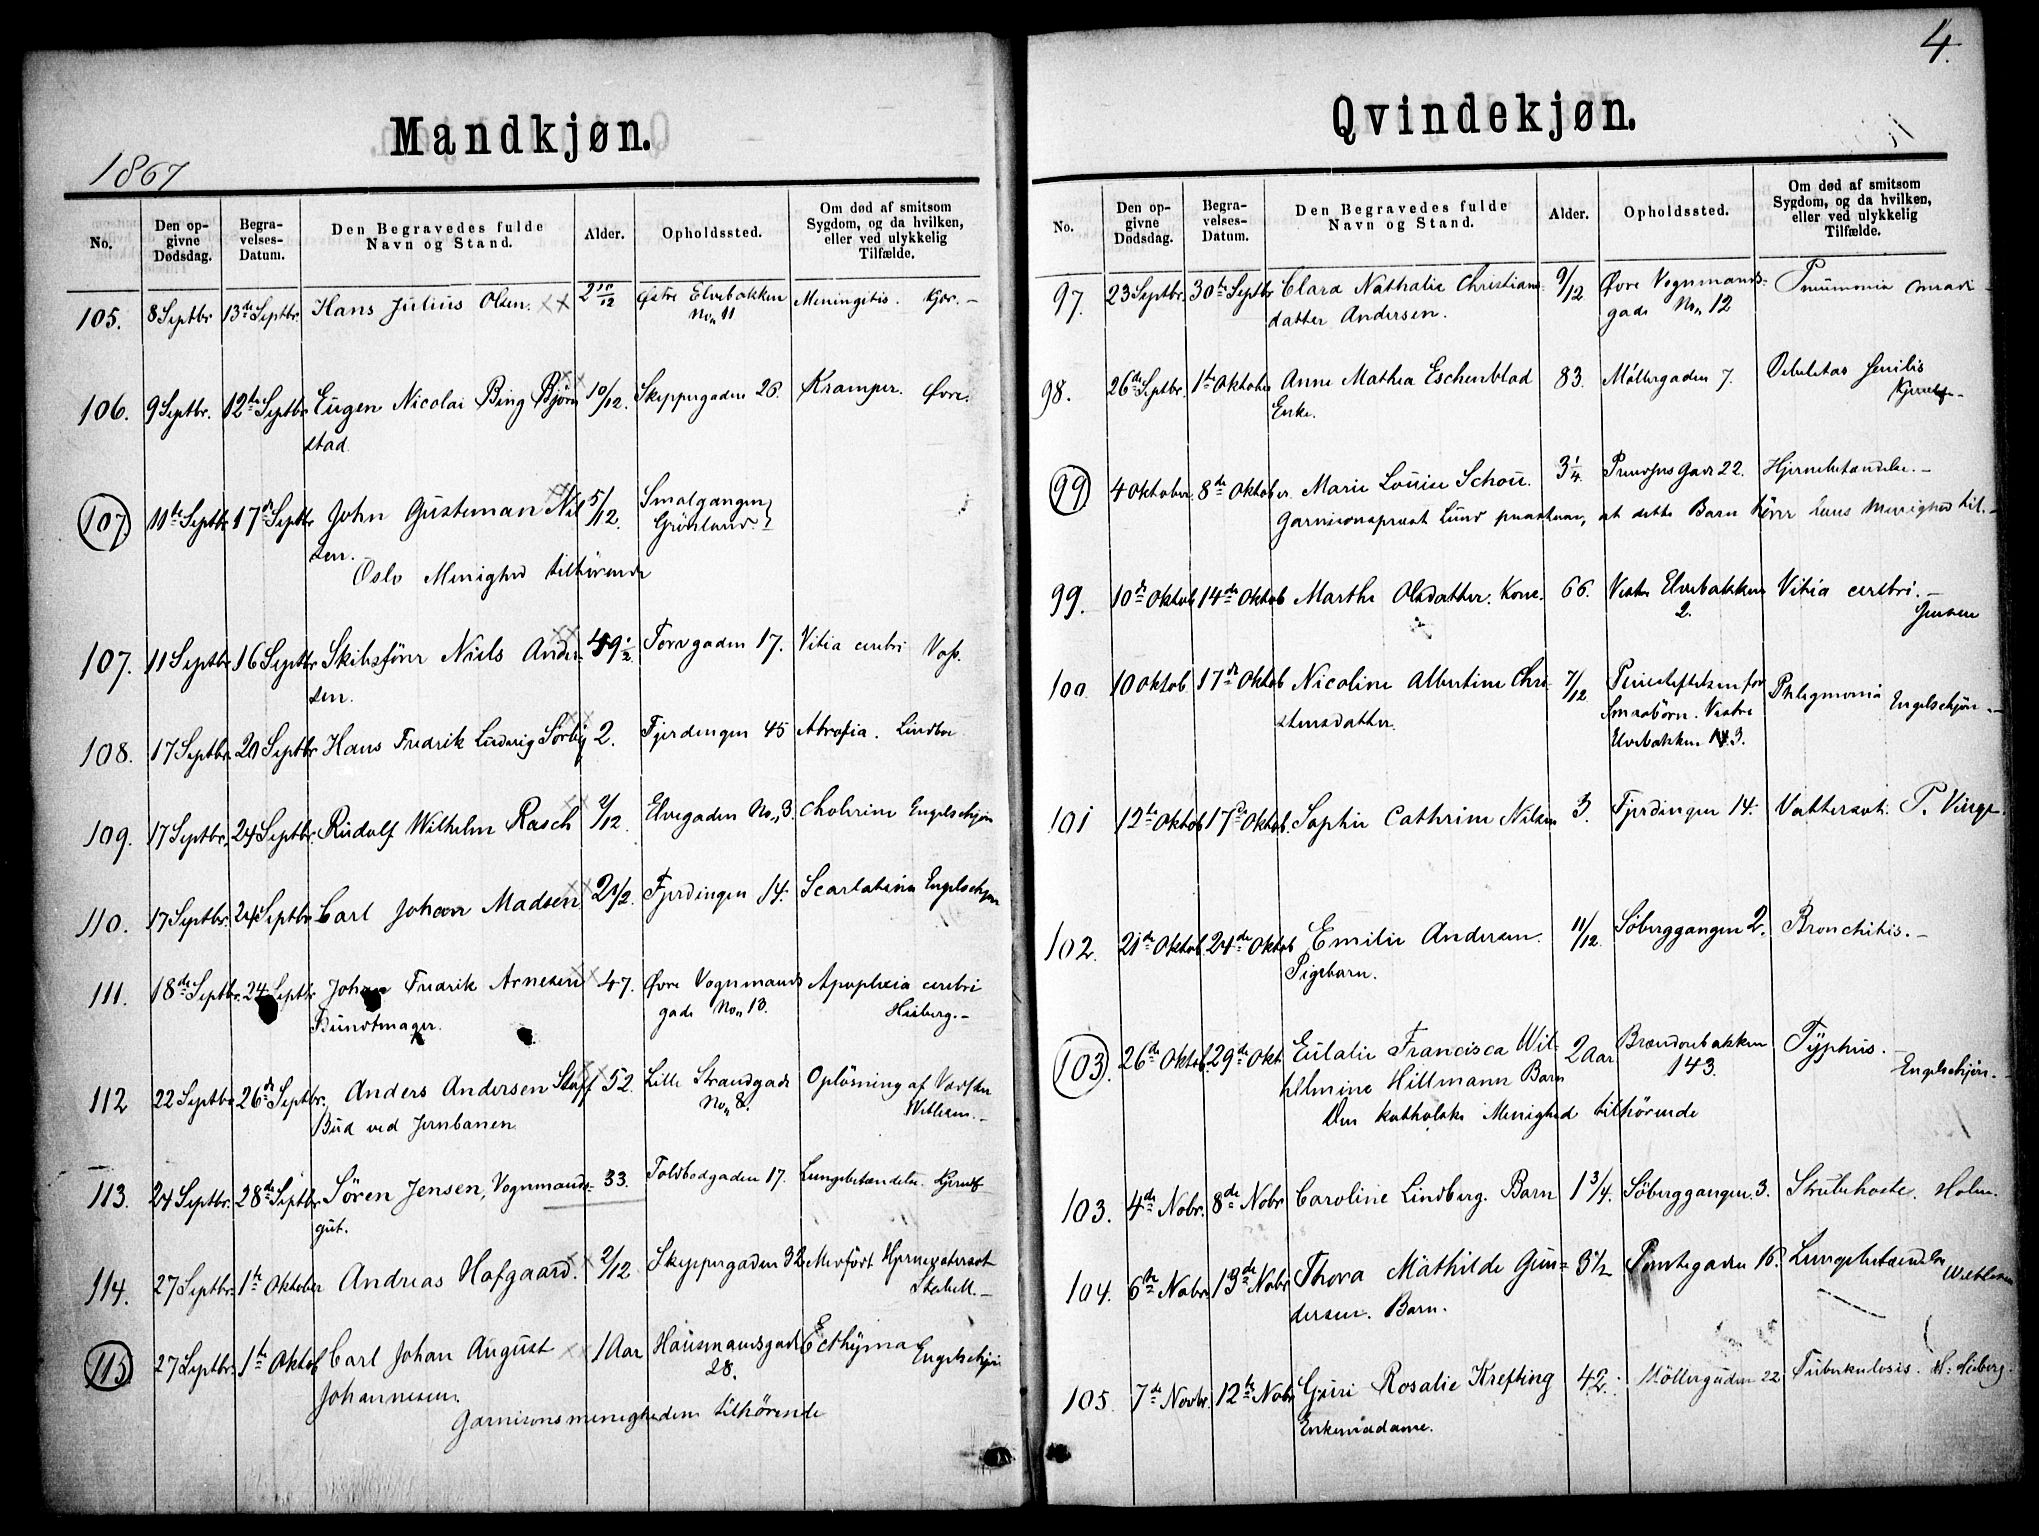 4.
Mandkjøn.
1867
No.
Den op-
givne
Dødsdag.
Begra-
velses-
Datum.
Den Begravedes fulde
Navn og Stand.
Alder.
Opholdssted.
Om død af smitsom
Sygdom, og da hvilken,
eller ved ulykkelig
Tilfælde.
105. 8 Septbr 13de Septbr. Hans Julius Olsen. 2 10/12 Østre Elvebakken Meningitis. Kjær.
No. 11
106. 9 Septbr. 12te Septbr Eugen Nicolai Bing Bjørn 10/12. Skippergaden 26. Kramper. Øvre.
stad.
107. 11te Septbr 17de Septbr John Gusteman Nil 5/12. Smalgangen
sen. Grönland
Oslo Menighed tilhörende
107. 11 Septbr 16 Septbr Skibsförer Niels Ander- 49 1/2. Torvgaden 17. Vitia cerebri Voss.
sen.
108. 17 Septbr. 20 Septbr Hans Fredrik Ludvig Sörby 2. Fjerdingen 45 Atrofia. Lindboe
109. 17 Septbr. 24 Septbr. Rudolf Wilhelm Rasch 2/12 Elvegaden No. 3. Cholerine Engelschjøn
110. 17 Septbr. 24 Septbr Carl Johan Madsen 2 1/2 Fjerdingen 14. Scarlatina Engelschjøn
111. 18de Septbr. 24 Septbr Johan Fredrik Arnesen 47. Øvre Vognmands Apoplexia cerebri
Bundtmager. gade No. 13. Heiberg.
112 22 Septbr 26de Septbr. Anders Andersen Staff 52. Lille Strandgade Oplösning af Vædsker
Bud ved Jernbanen No. 8.
113. 24 Septbr. 28de Septbr Sören Jensen, Vognmands- 33. Toldbodgaden 17. Lungebetændelse Kjerulf
gut.
114. 27 Septbr. 1te Oktober Andreas Hofgaard. 2/12 Skippergaden 32 Medfödt Hjernevatersot
115 27 Septbr. 1te Oktob Carl Johan August 1 Aar Hausmandsgade Ecthyma Engelschjøn
Johannesen. 28.
Garnisonsmenigheden tilhörende
Qvindekjøn.
No.
Den op-
givne
Dødsdag.
Begra-
velses-
Datum.
Den Begravedes fulde
Navn og Stand.
Alder.
Opholdssted.
Om død af smitsom
Sygdom, og da hvilken,
eller ved ulykkelig
Tilfælde.
97. 23 Septbr. 30te Septbr Clara Nathalie Christians 9/12 Øvre Vognmands- Pneumonia Conradi
datter Andersen. gade No. 12
98. 26de Septbr. 1te Oktober Anne Mathea Eschenblad 83. Möllergaden 7. Debeletas Senilis
Enke. Kjerulf
99 4 Oktober 8de Oktober Marie Louise Schou. 3 1/4 Prindsens Gade 22. Hjernebetændelse.
Garnisonsprest Lund paastaar, at dette Barn hörer hans Menighed til.
99. 10de Oktob 14de Oktob Marthe Olsdatter. Kone. 66. Vestre Elvebakken Vitia cerebri.
2. Jensen
100. 10 Oktob. 17de Oktob Nicoline Albertine Chri 7/12 Pleiestiftelsen for Phlegmonia Engelschjøn
stensdatter. Smaabörn. Vestre
Elvebakken 143.
101 12te Oktob 17de Oktob. Sophie Cathrine Nilsen 3. Fjerdingen 14. Vattersot. P. Vinge.
102. 21de Oktob. 24de Oktob Emilie Andersen. 11/12. Söberggangen 2. Bronchitis.
Pigebarn.
103. 26de Oktob. 29de Okt. Eulalie Francisca Wil- 2 Aar Brændenbakken Typhus.
helmine Hillmann Barn 143. Engelschjøn.
Den katholske Menighed tilhörende
103. 4de Nobr. 8de Nobr Caroline Lindberg. Barn 1 3/4. Söberggangen 3. Strubehoste. Holm.
104. 6te Nobr. 13de Nobr Thora Mathilde Gun- 3 1/2 Tomtegaden 16. Lungebetændelse
dersen. Barn.
105. 7de Novbr. 12te Nobr Guri Rosalie Krefting 42. Möllergaden 22 Tuberkulosis. Heiberg.
Enkemadame.